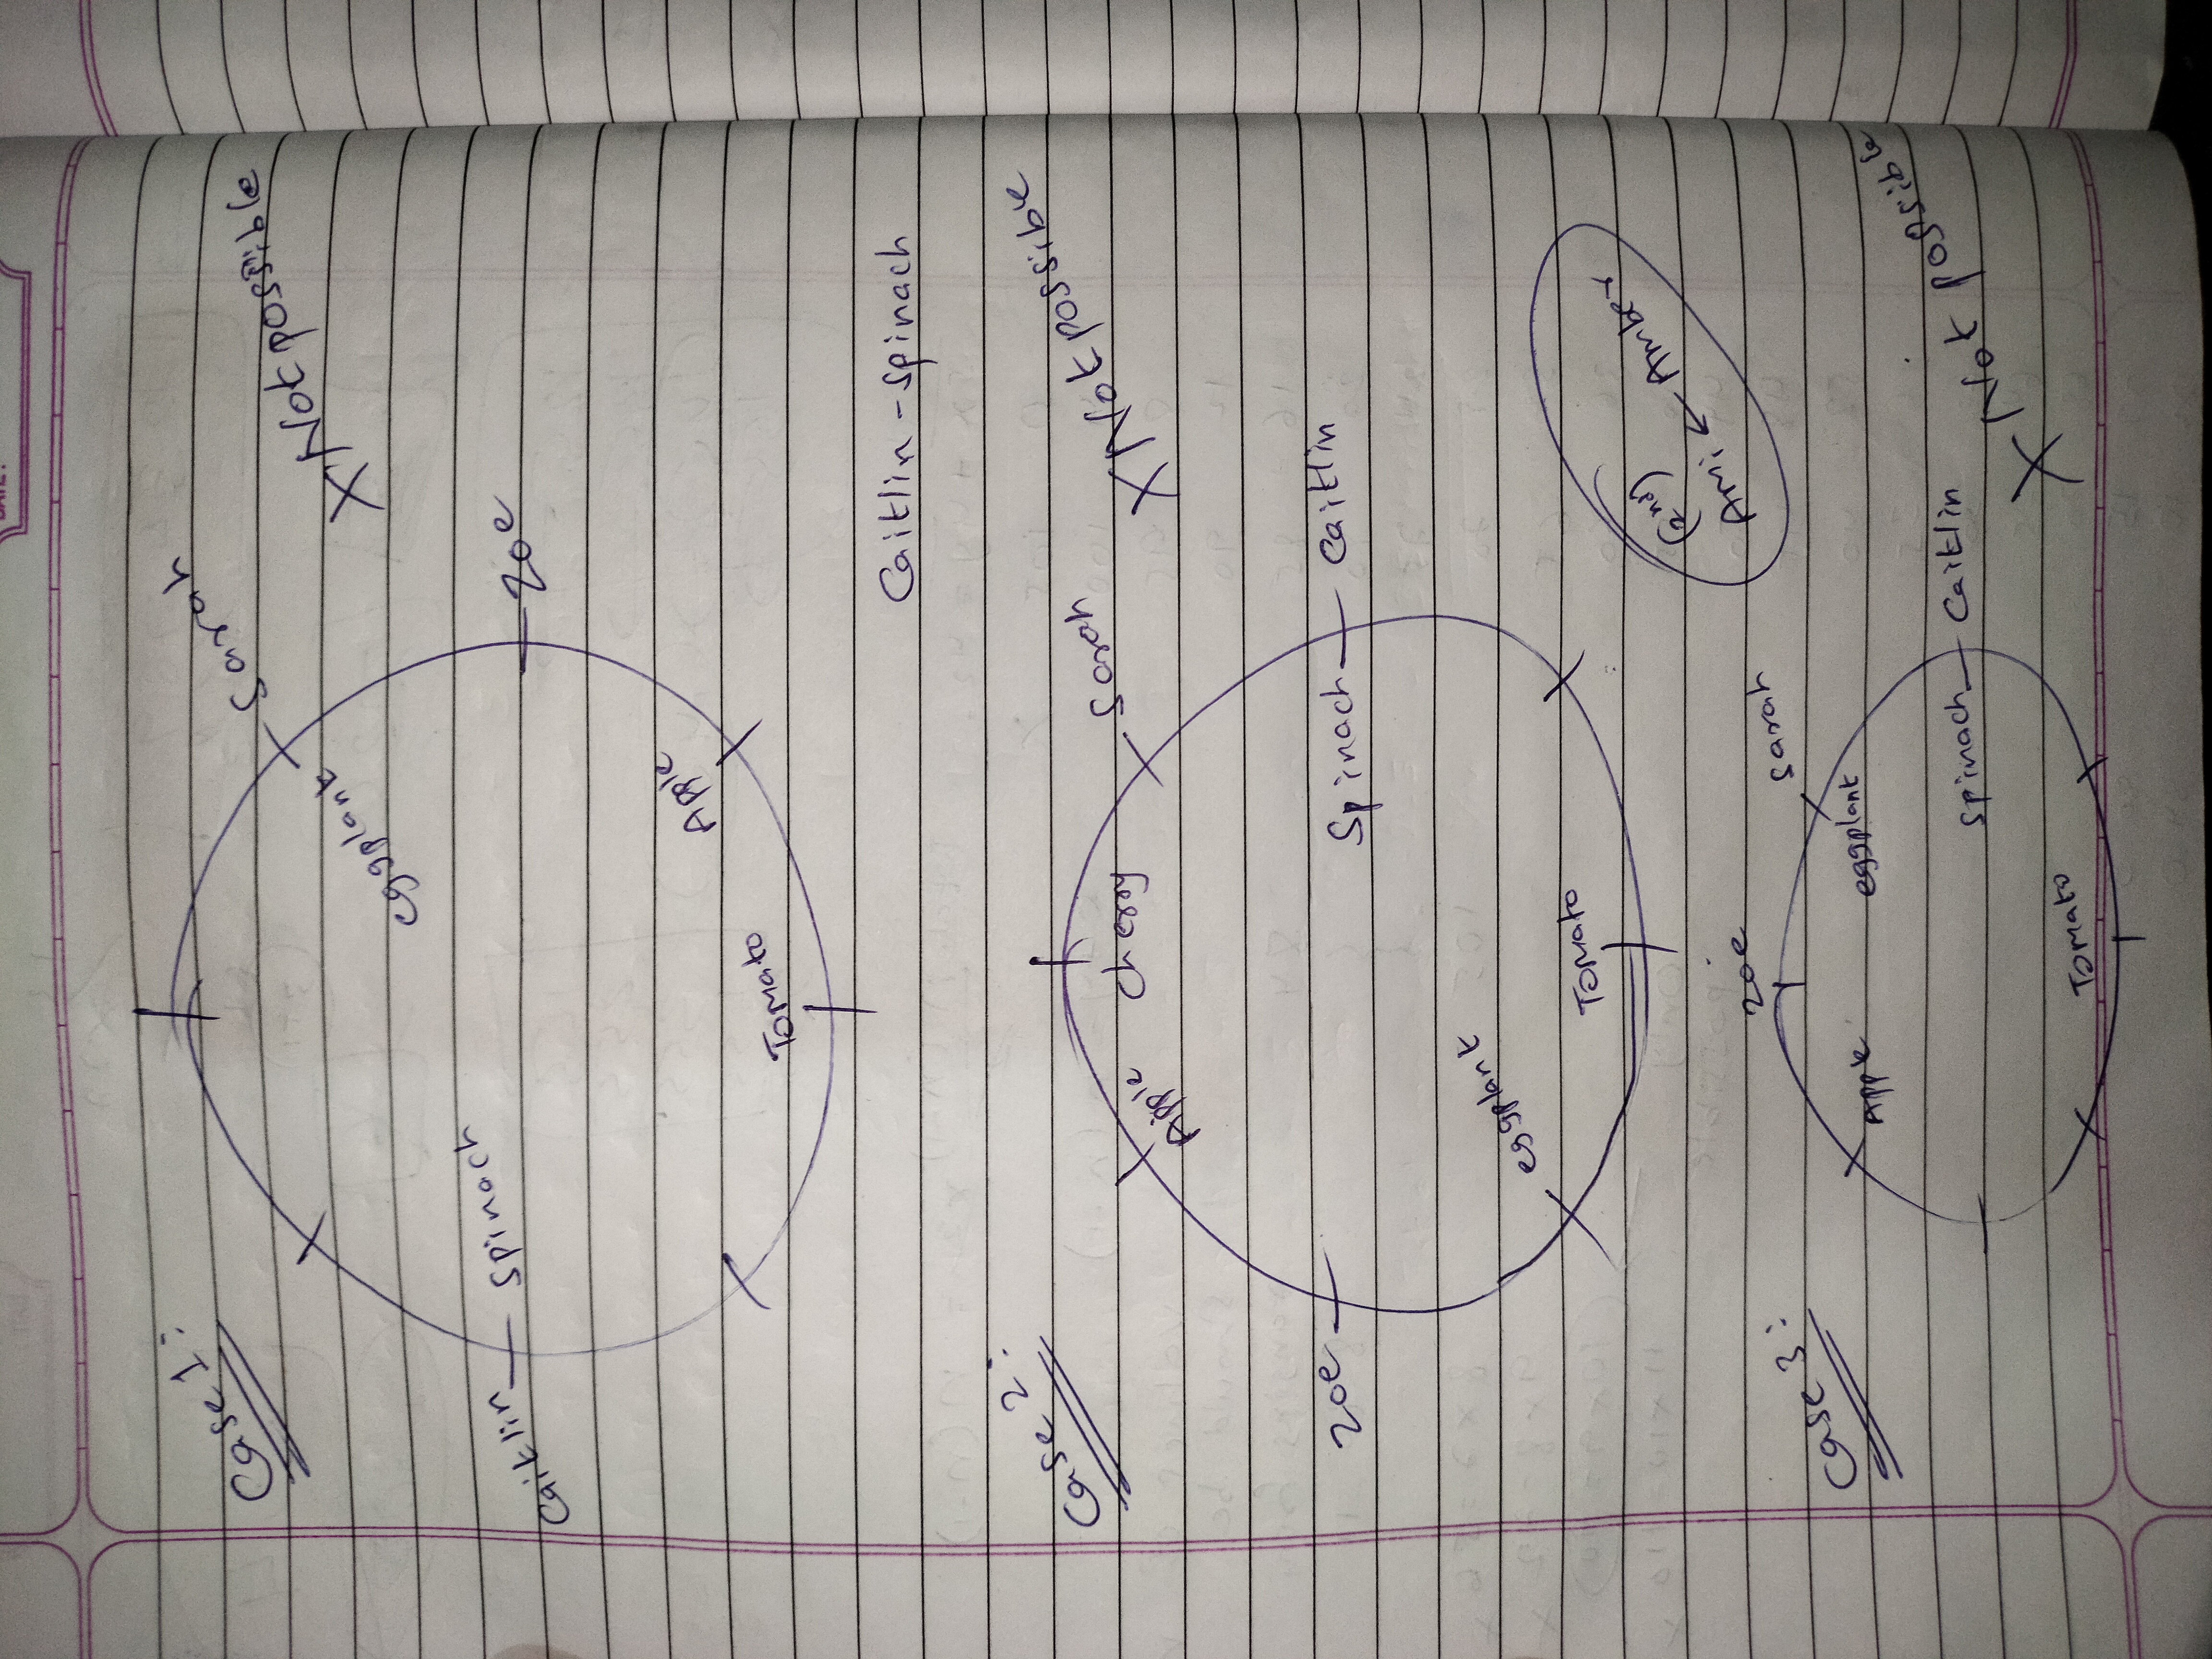 Case 1:
Sarah
X Not possible
eggplant
Caitlin — Spinach — Zoe
Apple
Tomato
Caitlin - Spinach
Case 2:
Sarah
X Not possible
Cherry
Apple
Zoe — Spinach — Caitlin
eggplant
Tomato
Amber
Case 3:
Zoe
Sarah
Apple
eggplant
Spinach — Caitlin
X Not Possible
Tomato